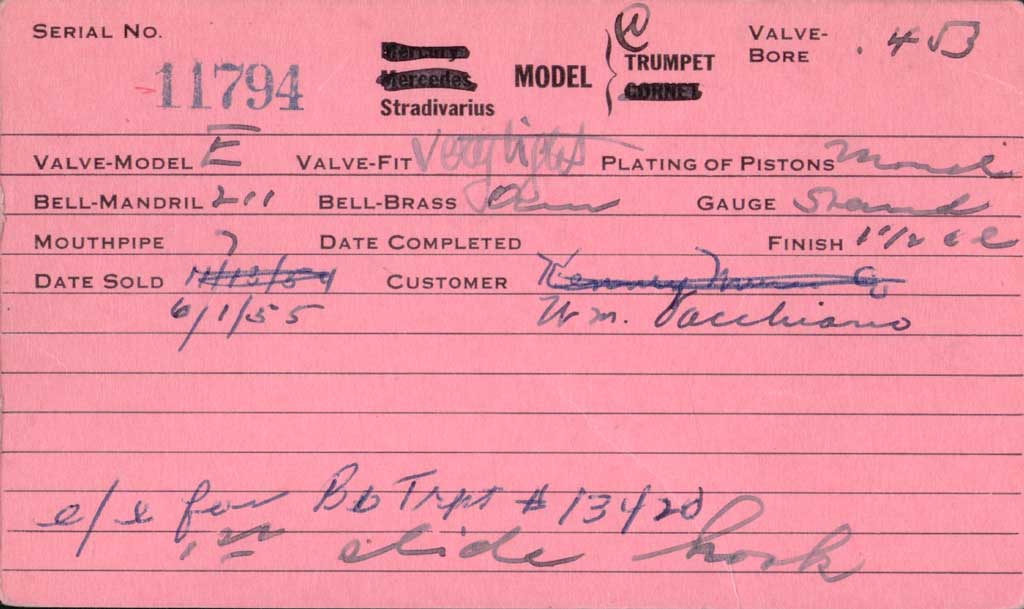 SERIAL NO. 11794
Mercury
Mercedes
Stradivarius
MODEL
C
TRUMPET
CORNET
VALVE-BORE .453
VALVE-MODEL E VALVE-FIT Very light PLATING OF PISTONS Monel
BELL-MANDRIL 211 BELL-BRASS GAUGE Stand
MOUTHPIPE 7 DATE COMPLETED FINISH 1 1/2
DATE SOLD 11/13/54 CUSTOMER Kenney Music Co
6/1/55 Wm. Vacchiano
e/x for Bb Trpt # 13420
1st slide hook